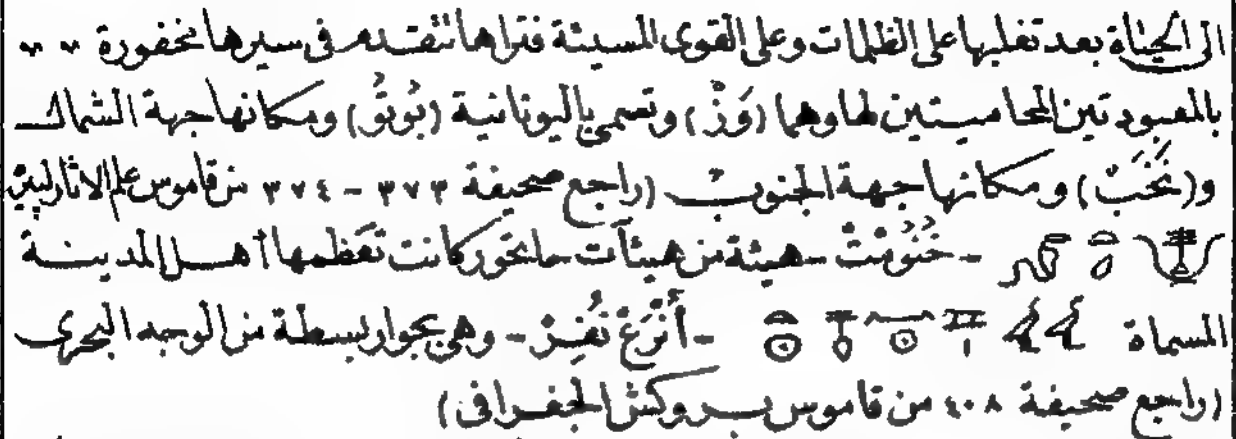 الى الحياة بعد تغلبها على الظلمات وعلى القوى المسيئة فتراها تتقدم فى سيرها مخفورة
بالمعبودتين المحاميتين لها وهما (وَزْ) وتسمى باليونانية (بُوتُو) ومكانها جهة الشمال
و(نَخَبْ) ومكانها جهة الجنوب (راجع صحيفة ٣٧٣ - ٣٧٤ من قاموس علم الاثار لپيِّر
- خْنُومِتْ - هيئة من هيئات حاتحور كانت تعظمها أهل المدينة
المسماة - أَنْرَعْ نُفِرْ - وهى بجوار بسطة من الوجه البحرى
(راجع صحيفة ٤٠٨ من قاموس بروكش الجغرافى)